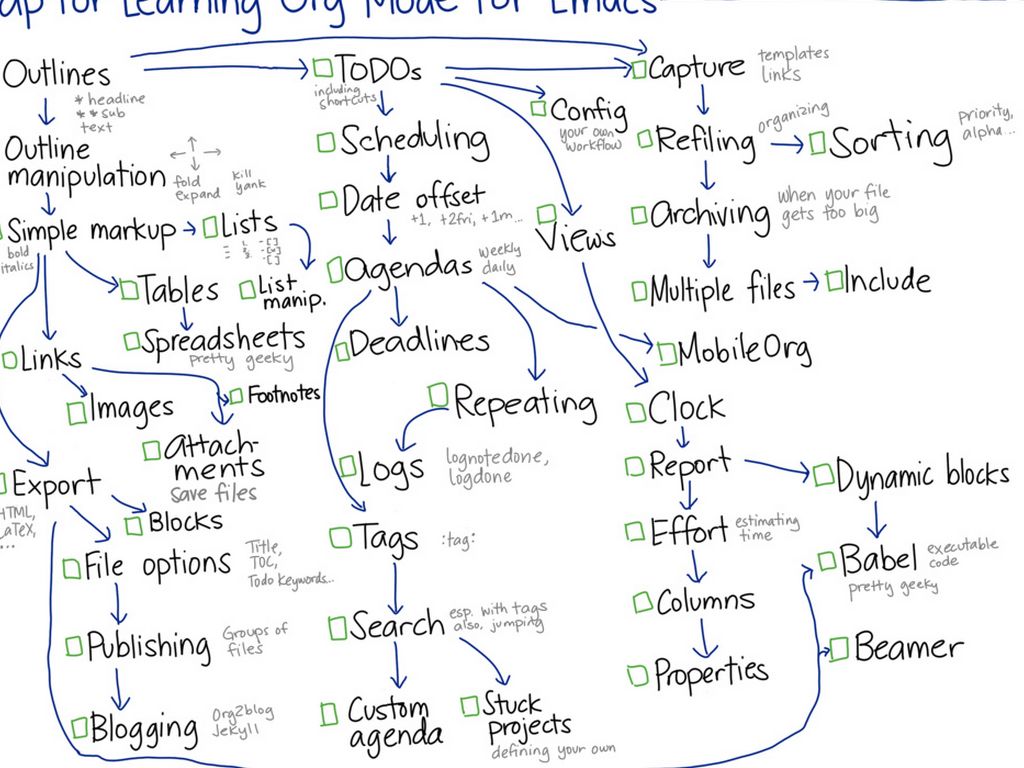 ap for Learning Org Mode for Emacs
Outlines
* headline
** sub
text
Outline
manipulation
fold
expand
kill
yank
Simple markup
bold
italics
Lists
Tables
List
manip.
Spreadsheets
pretty geeky
Links
Images
Footnotes
Attach-
ments
save files
Export
HTML,
LaTeX,
...
Blocks
File options
Title,
TOC,
Todo keywords...
Publishing
Groups of
files
Blogging
Org2blog
Jekyll
TODOs
including
shortcuts
Scheduling
Date offset
+1, +2fri, +1m...
Agendas
weekly
daily
Deadlines
Repeating
Logs
lognotedone,
logdone
Tags
:tag:
Search
esp. with tags
also, jumping
Custom
agenda
Stuck
projects
defining your own
Config
your own
workflow
Views
Capture
templates
links
Refiling
organizing
Sorting
priority,
alpha...
Archiving
when your file
gets too big
Multiple files
Include
MobileOrg
Clock
Report
Effort
estimating
time
Columns
Properties
Dynamic blocks
Babel
executable
code
pretty geeky
Beamer